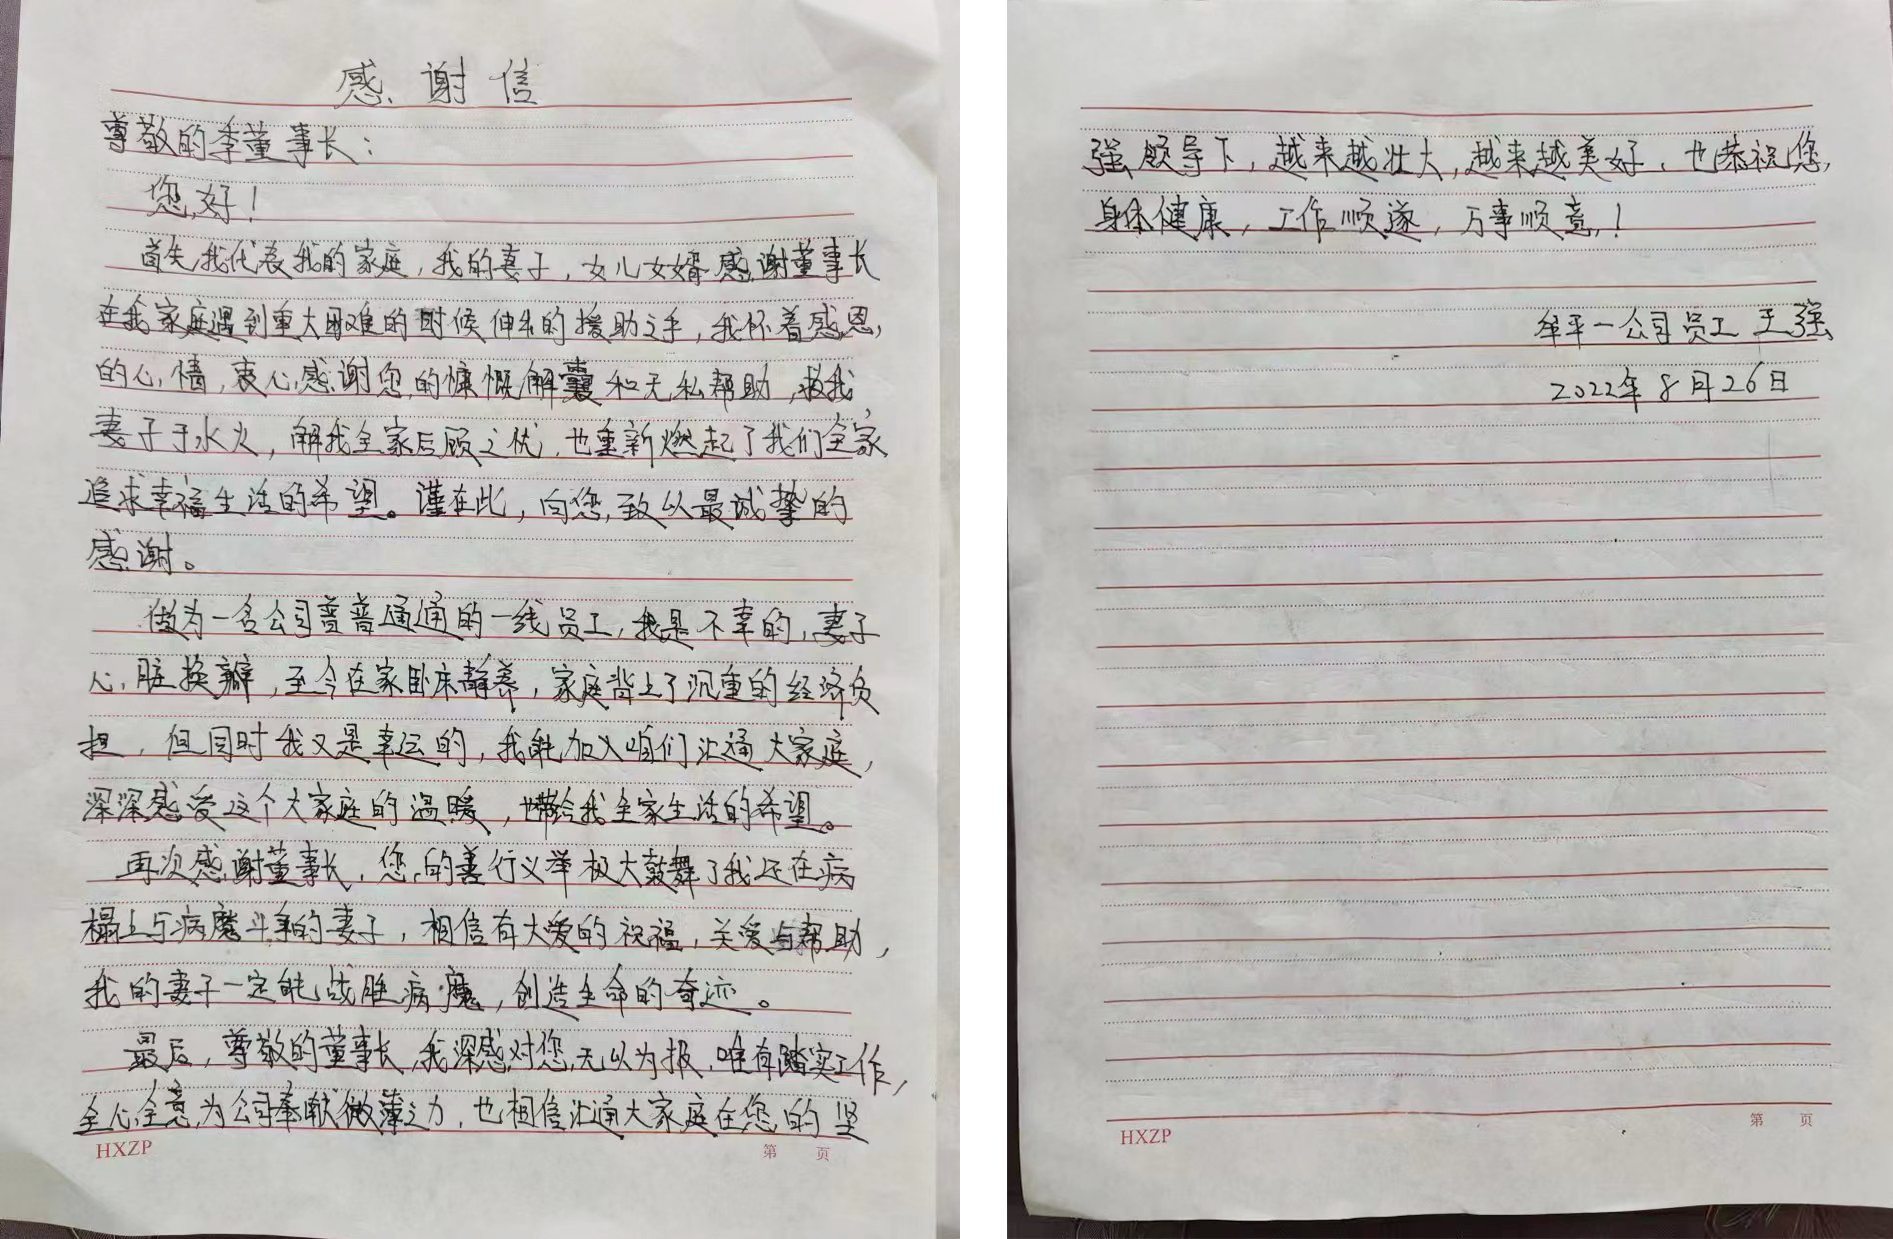 感谢信
尊敬的李董事长：
您好！
首先我代表我的家庭，我的妻子，女儿女婿感谢董事长
在我家庭遇到重大困难的时候伸出的援助之手，我怀着感恩
的心情，衷心感谢您的慷慨解囊和无私帮助，救我
妻子于水火，解我全家后顾之忧，也重新燃起了我们全家
追求幸福生活的希望。谨在此，向您致以最诚挚的
感谢。
做为一名公司普普通通的一线员工，我是不幸的，妻子
心脏换瓣，至今在家卧床静养，家庭背上了沉重的经济负
担，但同时我又是幸运的，我能加入咱们汇通大家庭，
深深感受这个大家庭的温暖，也带给我全家生活的希望。
再次感谢董事长，您的善行义举极大鼓舞了我还在病
榻上与病魔斗争的妻子，相信有大爱的祝福，关爱与帮助，
我的妻子一定能战胜病魔，创造生命的奇迹。
最后，尊敬的董事长，我深感对您无以为报，唯有踏实工作，
全心全意为公司奉献微薄之力，也相信汇通大家庭在您的坚
HXZP 第 页
强领导下，越来越壮大，越来越美好，也恭祝您，
身体健康，工作顺遂，万事顺意！
牟平一公司员工 王强
2022年8月26日
HXZP 第 页